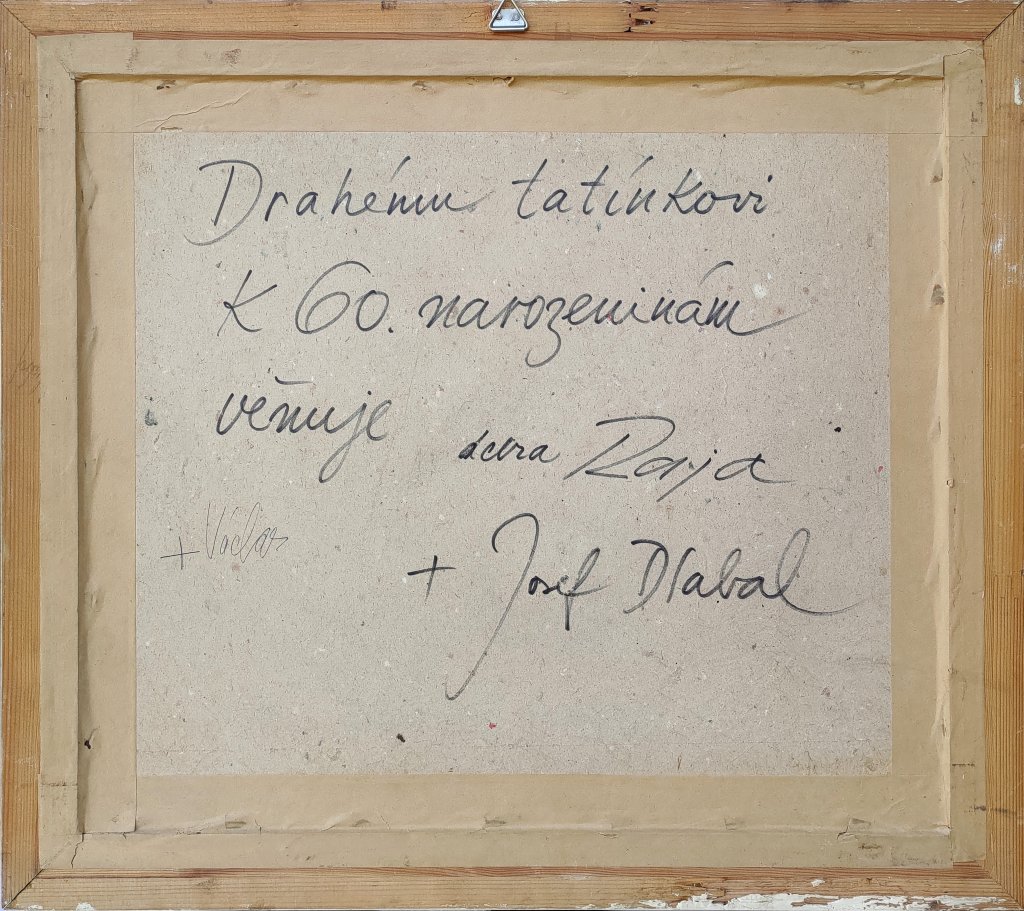 Drahému tatínkovi
K 60. narozeninám
věnuje
dcera Raja
+ Václav
+ Josef Dlabal